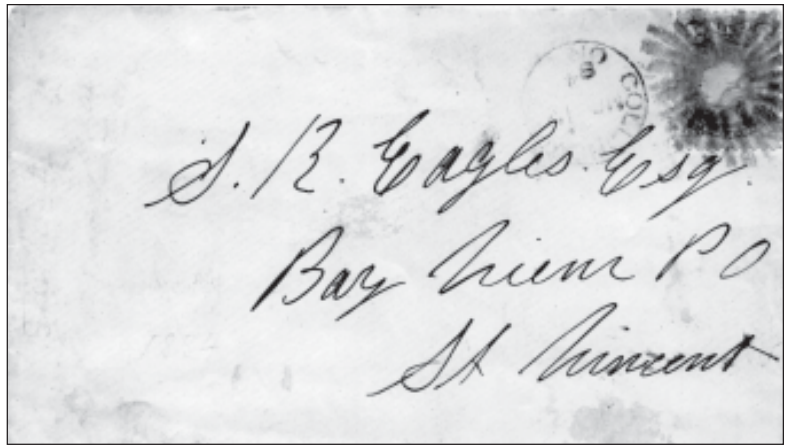 S. R. Eagles. Esq.
Bay View P O
St Vincent